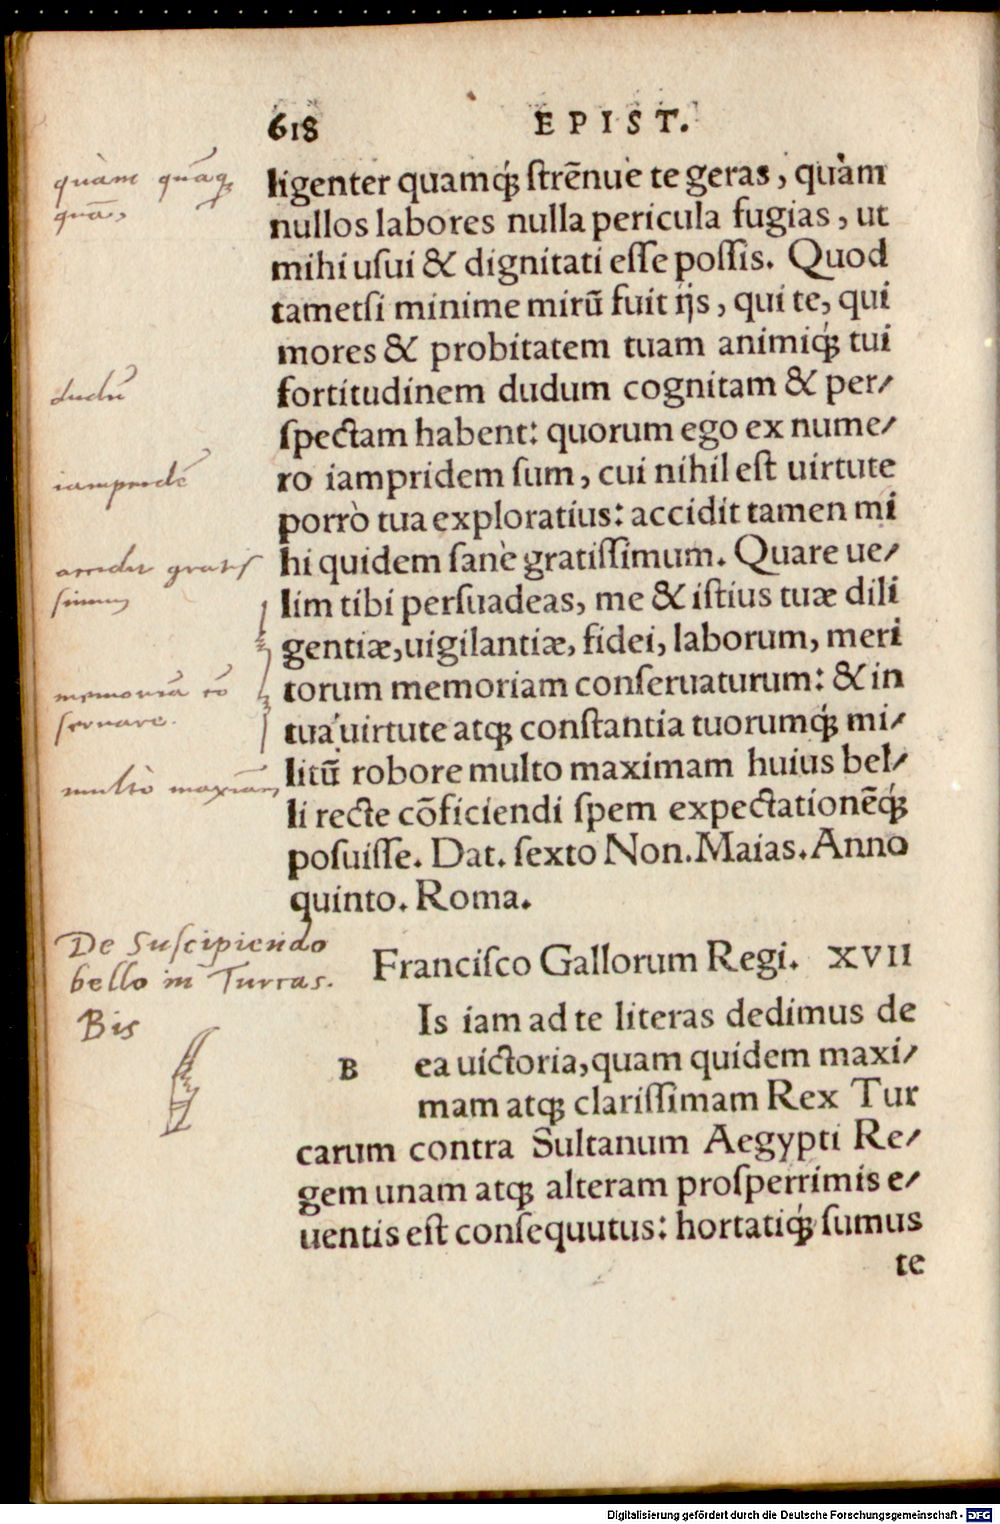 618 EPIST.
ligenter quamq́; ſtrēnue te geras, quàm
nullos labores nulla pericula fugias, ut
mihi usui & dignitati eſſe poſſis. Quod
tametſi minime mirū fuit ijs, qui te, qui
mores & probitatem tuam animiq́; tui
fortitudinem dudum cognitam & per/
ſpectam habent: quorum ego ex nume/
ro iampridem ſum, cui nihil eſt uirtute
porrò tua exploratius: accidit tamen mi
hi quidem ſanè gratiſſimum. Quare ue/
lim tibi perſuadeas, me & iſtius tuæ dili
gentiæ, uigilantiæ, fidei, laborum, meri
torum memoriam conſeruaturum: & in
tua uirtute atq; conſtantia tuorumq́; mi/
litū robore multo maximam huius bel/
li recte cōficiendi ſpem expectationēq́;
poſuiſſe. Dat. ſexto Non. Maias. Anno
quinto. Roma.
Franciſco Gallorum Regi. XVII
Is iam ad te literas dedimus de
B ea uictoria, quam quidem maxi/
mam atq; clariſſimam Rex Tur
carum contra Sultanum Aegypti Re/
gem unam atq; alteram proſperrimis e/
uentis eſt conſequutus: hortatiq́; ſumus
te
quàm quāq;
quā,
dudū
iampridē
accidit gratis
simum
memoriā cō
seruare.
multò maximā
De Suſcipiendo
bello in Turcas.
Bis
Digitalisierung gefördert durch die Deutsche Forschungsgemeinschaft - DFG